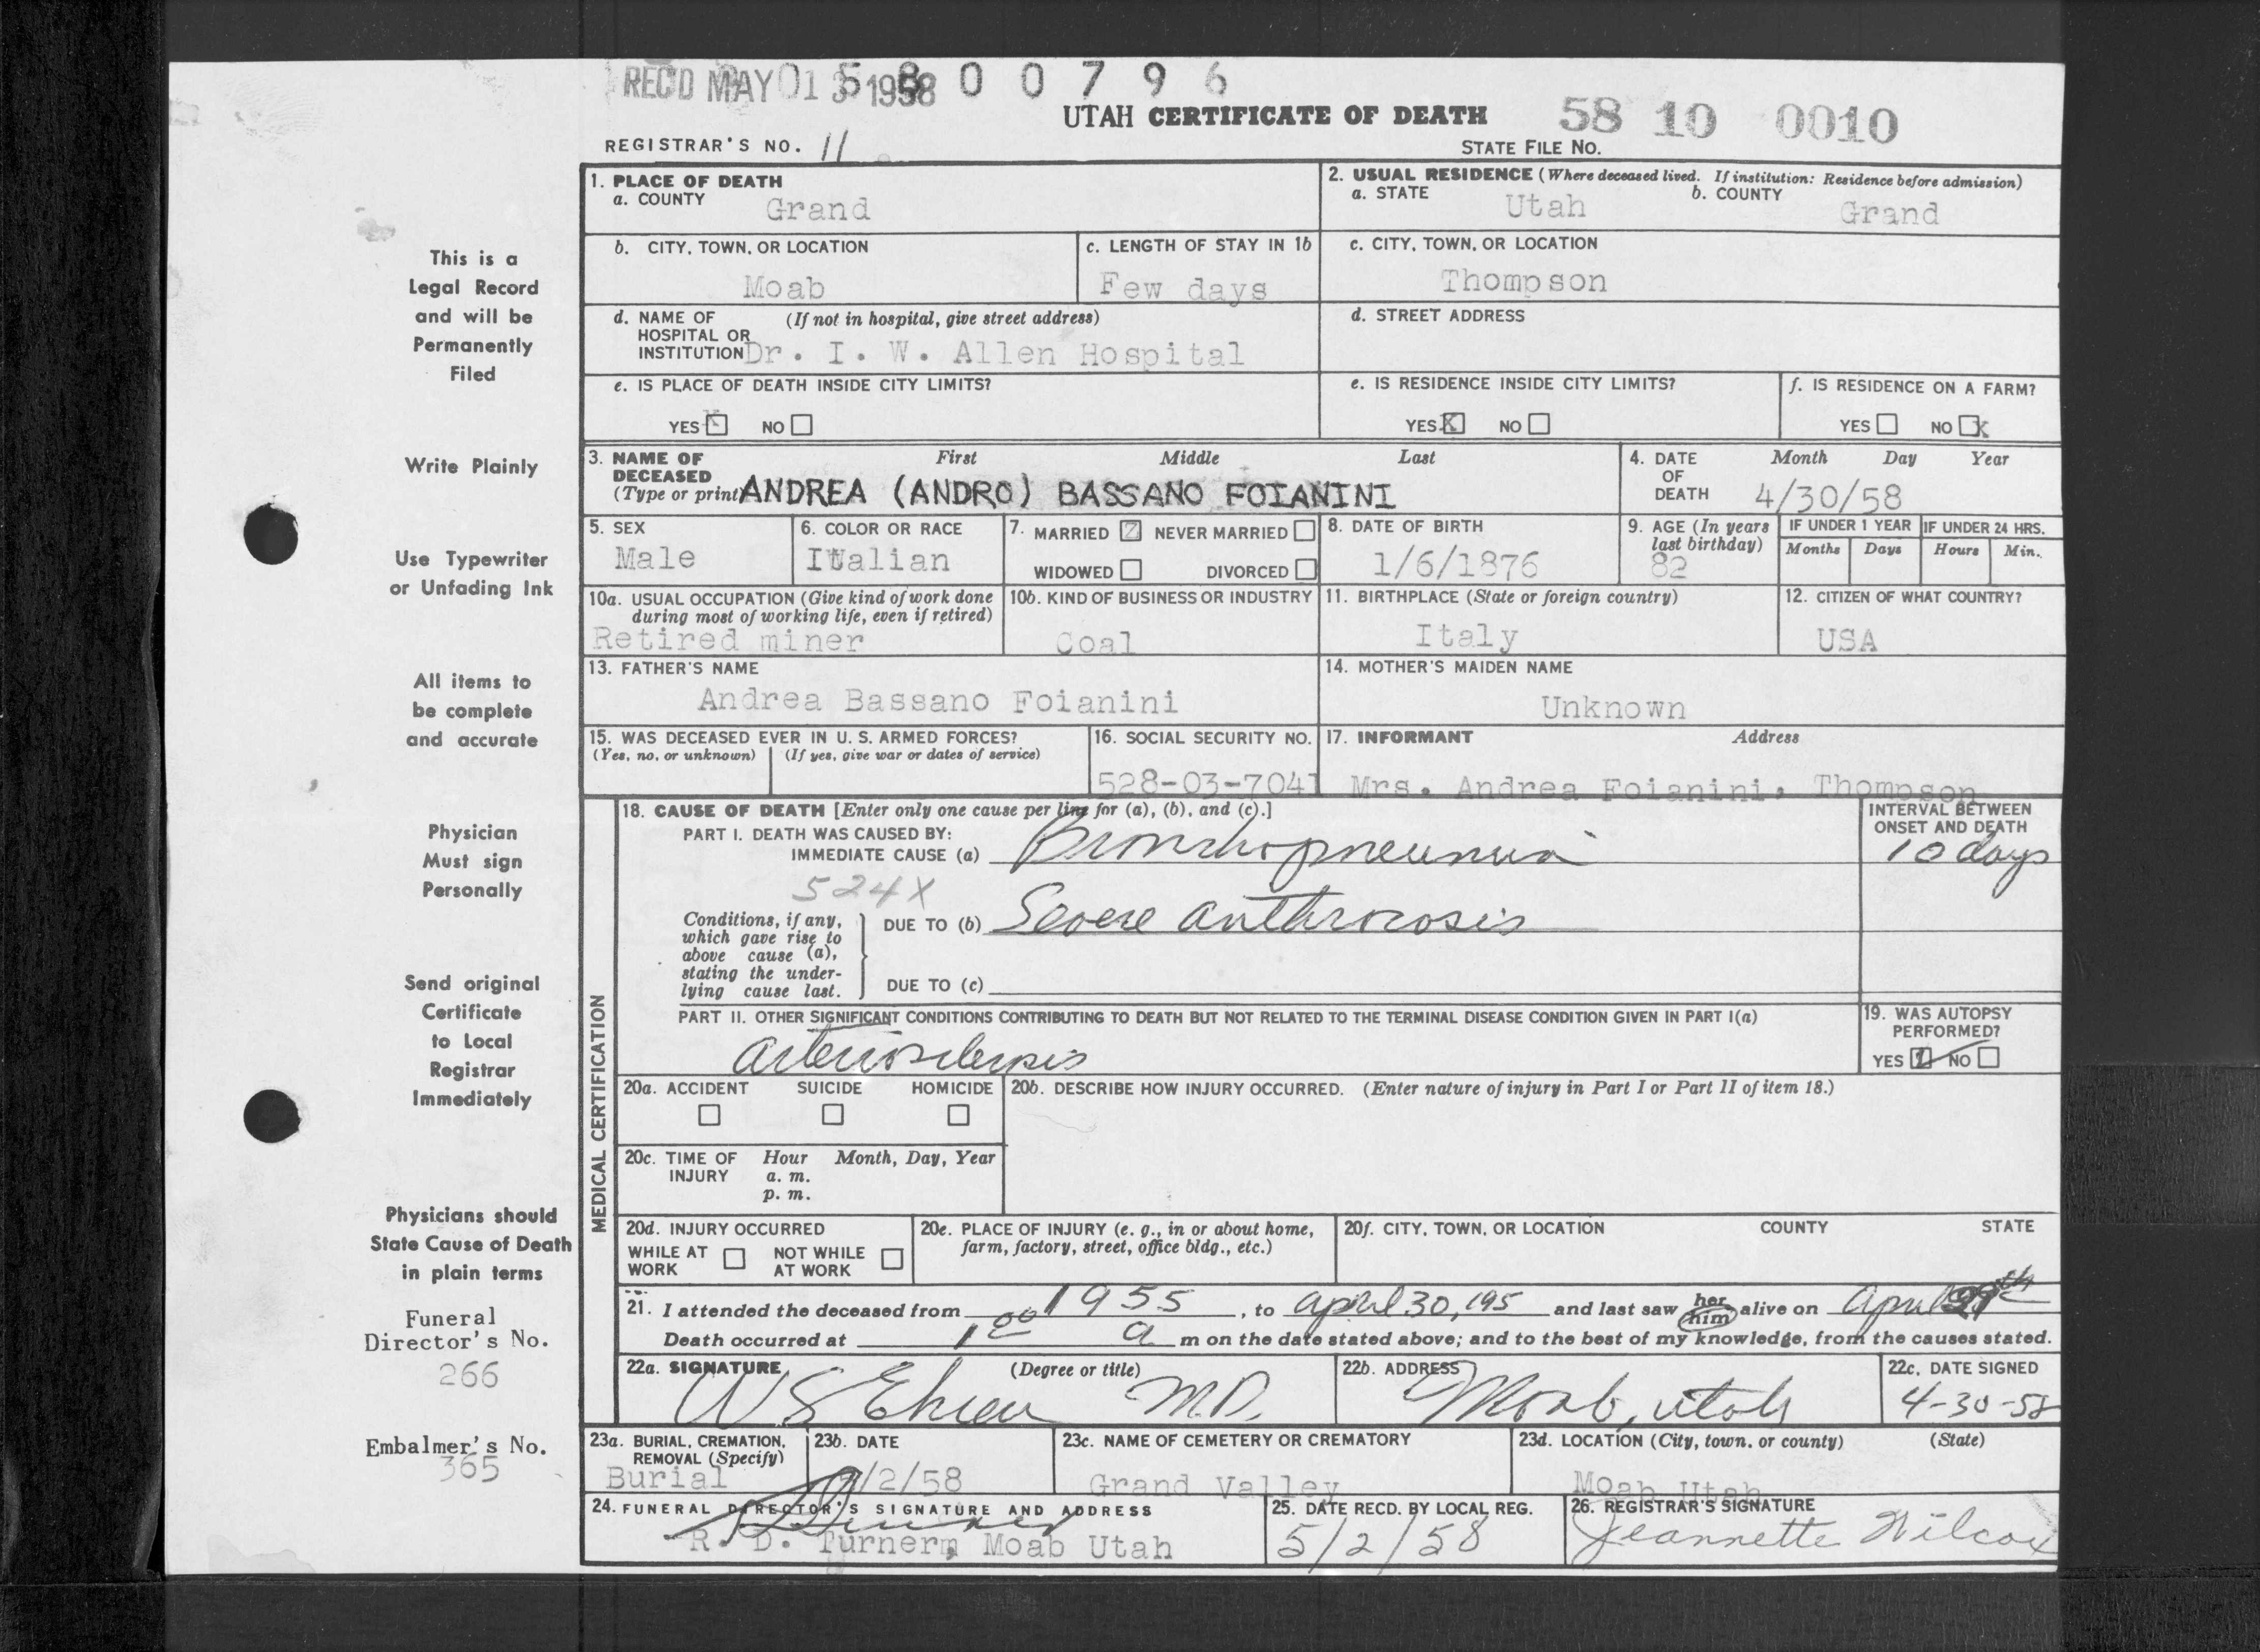 REC'D MAY 01 5 1958 0 0 7 9 6
UTAH CERTIFICATE OF DEATH 58 10 0010
REGISTRAR'S NO. 11 STATE FILE NO.
1. PLACE OF DEATH
a. COUNTY Grand
2. USUAL RESIDENCE (Where deceased lived. If institution: Residence before admission)
a. STATE Utah b. COUNTY Grand
b. CITY, TOWN, OR LOCATION Moab
c. LENGTH OF STAY IN 1b Few days
c. CITY, TOWN, OR LOCATION Thompson
d. NAME OF HOSPITAL OR INSTITUTION (If not in hospital, give street address)
Dr. I. W. Allen Hospital
d. STREET ADDRESS
e. IS PLACE OF DEATH INSIDE CITY LIMITS?
YES X NO
e. IS RESIDENCE INSIDE CITY LIMITS?
YES X NO
f. IS RESIDENCE ON A FARM?
YES NO X
3. NAME OF DECEASED (Type or print) First Middle Last
ANDREA (ANDRO) BASSANO FOIANINI
4. DATE OF DEATH Month Day Year
4/30/58
5. SEX Male
6. COLOR OR RACE Italian
7. MARRIED NEVER MARRIED
WIDOWED DIVORCED
8. DATE OF BIRTH 1/6/1876
9. AGE (In years last birthday) 82
IF UNDER 1 YEAR Months Days
IF UNDER 24 HRS. Hours Min.
10a. USUAL OCCUPATION (Give kind of work done during most of working life, even if retired)
Retired miner
10b. KIND OF BUSINESS OR INDUSTRY
Coal
11. BIRTHPLACE (State or foreign country)
Italy
12. CITIZEN OF WHAT COUNTRY?
USA
13. FATHER'S NAME
Andrea Bassano Foianini
14. MOTHER'S MAIDEN NAME
Unknown
15. WAS DECEASED EVER IN U. S. ARMED FORCES?
(Yes, no, or unknown) (If yes, give war or dates of service)
16. SOCIAL SECURITY NO.
528-03-7041
17. INFORMANT Address
Mrs. Andrea Foianini, Thompson
MEDICAL CERTIFICATION
18. CAUSE OF DEATH [Enter only one cause per line for (a), (b), and (c).]
PART I. DEATH WAS CAUSED BY:
IMMEDIATE CAUSE (a) Bronchopneumonia
INTERVAL BETWEEN ONSET AND DEATH
10 days
524X
Conditions, if any, which gave rise to above cause (a), stating the underlying cause last.
DUE TO (b) Severe anthrocosis
DUE TO (c)
PART II. OTHER SIGNIFICANT CONDITIONS CONTRIBUTING TO DEATH BUT NOT RELATED TO THE TERMINAL DISEASE CONDITION GIVEN IN PART I(a)
arteriosclerosis
19. WAS AUTOPSY PERFORMED?
YES NO
20a. ACCIDENT SUICIDE HOMICIDE
20b. DESCRIBE HOW INJURY OCCURRED. (Enter nature of injury in Part I or Part II of item 18.)
20c. TIME OF INJURY Hour Month, Day, Year
a. m.
p. m.
20d. INJURY OCCURRED
WHILE AT WORK NOT WHILE AT WORK
20e. PLACE OF INJURY (e. g., in or about home, farm, factory, street, office bldg., etc.)
20f. CITY, TOWN, OR LOCATION COUNTY STATE
21. I attended the deceased from 1955, to april 30, 195 and last saw her him alive on april 29th
Death occurred at 1 00 a m on the date stated above; and to the best of my knowledge, from the causes stated.
22a. SIGNATURE (Degree or title)
W S M.D.
22b. ADDRESS
Moab, utah
22c. DATE SIGNED
4-30-58
23a. BURIAL, CREMATION, REMOVAL (Specify)
Burial
23b. DATE
5/2/58
23c. NAME OF CEMETERY OR CREMATORY
Grand Valley
23d. LOCATION (City, town, or county) (State)
Moab Utah
24. FUNERAL DIRECTOR'S SIGNATURE AND ADDRESS
R. D. Turner, Moab Utah
25. DATE RECD. BY LOCAL REG.
5/2/58
26. REGISTRAR'S SIGNATURE
Jeannette Wilcox
This is a
Legal Record
and will be
Permanently
Filed
Write Plainly
Use Typewriter
or Unfading Ink
All items to
be complete
and accurate
Physician
Must sign
Personally
Send original
Certificate
to Local
Registrar
Immediately
Physicians should
State Cause of Death
in plain terms
Funeral
Director's No.
266
Embalmer's No.
365